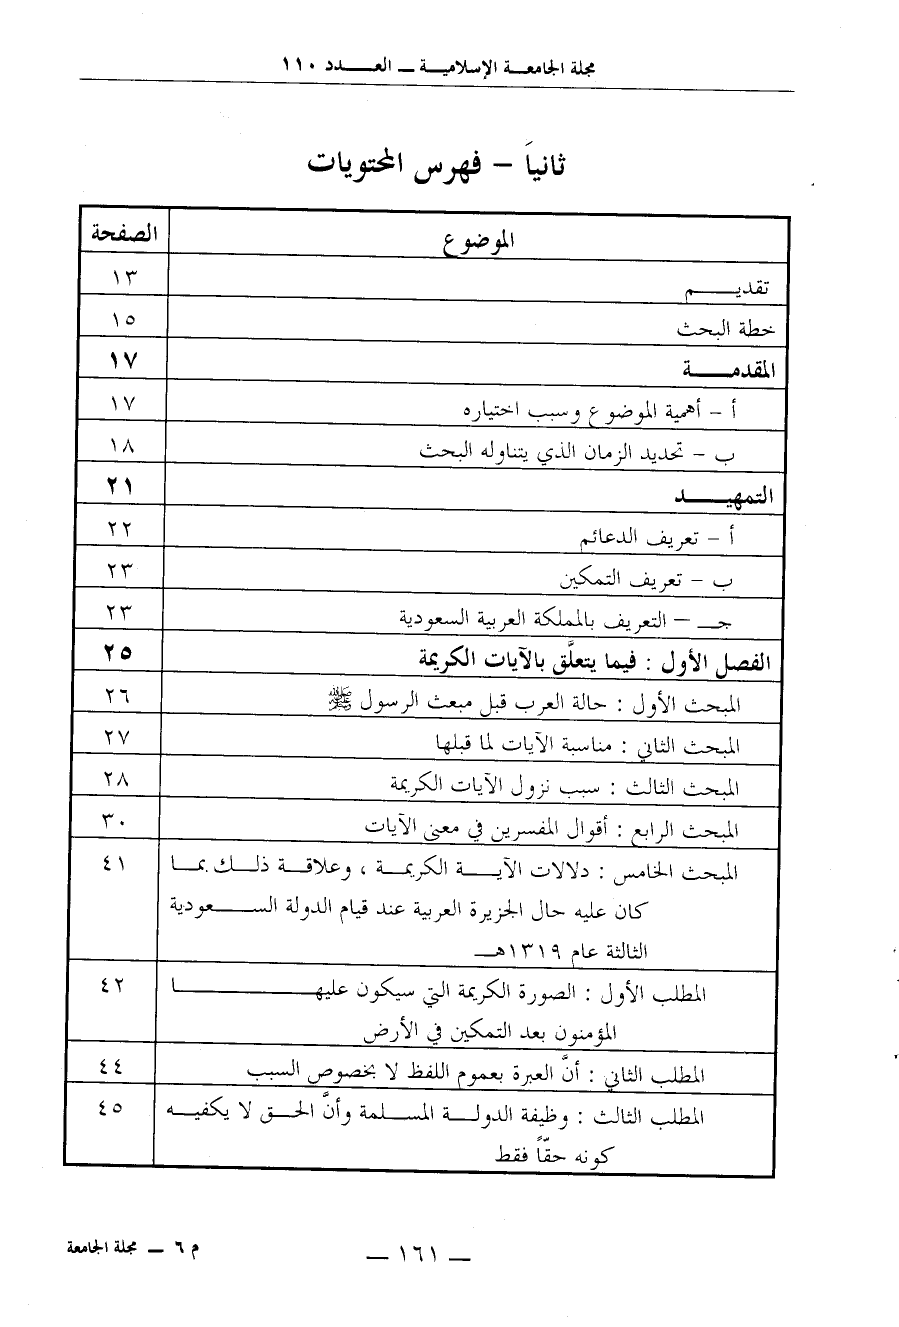 مجلة الجامعـة الإسلاميـة ــ العـــدد ١١٠
ثانياً – فهرس المحتويات
الموضوع الصفحة
تقديـــــم ١٣
خطة البحث ١٥
المقدمـــــة ١٧
أ – أهمية الموضوع وسبب اختياره ١٧
ب – تحديد الزمان الذي يتناوله البحث ١٨
التمهيــــد ٢١
أ – تعريف الدعائم ٢٢
ب – تعريف التمكين ٢٣
جـ – التعريف بالمملكة العربية السعودية ٢٣
الفصل الأول : فيما يتعلَّق بالآيات الكريمة ٢٥
المبحث الأول : حالة العرب قبل مبعث الرسول ﷺ ٢٦
المبحث الثاني : مناسبة الآيات لما قبلها ٢٧
المبحث الثالث : سبب نزول الآيات الكريمة ٢٨
المبحث الرابع : أقوال المفسرين في معنى الآيات ٣٠
المبحث الخامس : دلالات الآيـــة الكريمـة ، وعلاقـة ذلـك بمـا ٤١
كان عليه حال الجزيرة العربية عند قيام الدولة الســعودية
الثالثة عام ١٣١٩هــ
المطلب الأول : الصورة الكريمة التي سيكون عليهــــــــــا ٤٢
المؤمنون بعد التمكين في الأرض
المطلب الثاني : أنَّ العبرة بعموم اللفظ لا بخصوص السبب ٤٤
المطلب الثالث : وظيفة الدولـة المسلمة وأنَّ الحـق لا يكفيـه ٤٥
كونه حقّاً فقط
م ٦ ــ مجلة الجامعة
ــ ١٦١ ــ